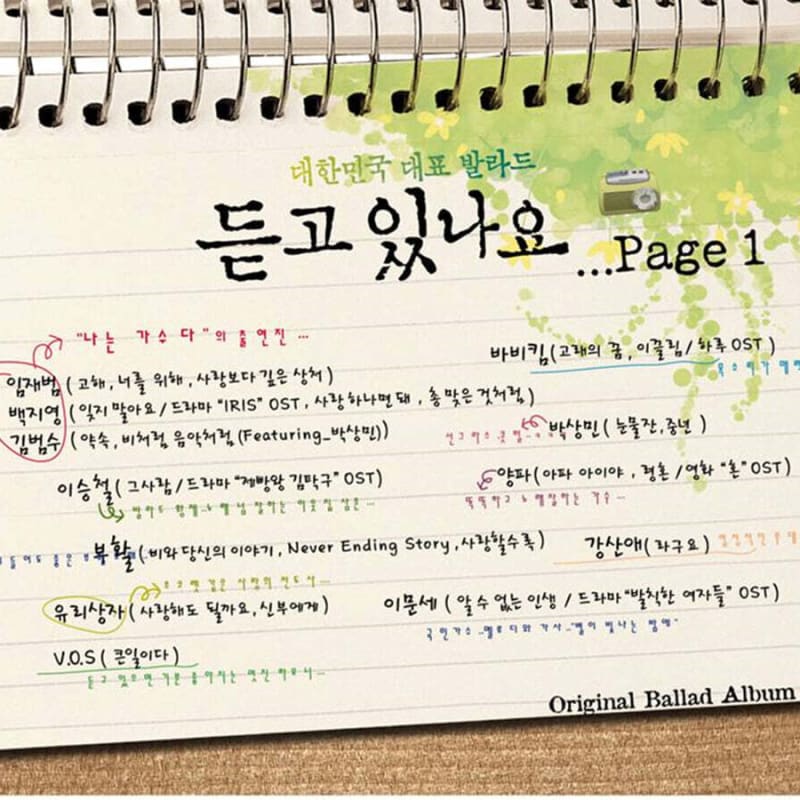 대한민국 대표 발라드
듣고 있나요
...Page 1
"나는 가수다"의 출연진 ...
임재범 ( 고해, 너를 위해, 사랑보다 깊은 상처 )
백지영 ( 잊지 말아요 / 드라마 "IRIS" OST , 사랑 하나면 돼 , 총 맞은 것처럼 )
김범수 ( 약속, 비처럼 음악처럼 (Featuring_박상민))
이승철 ( 그사람 / 드라마 "제빵왕 김탁구" OST)
부활 ( 비와 당신의 이야기 , Never Ending Story , 사랑할수록 )
유리상자 ( 사랑해도 될까요, 신부에게 )
V.O.S ( 큰일이다 )
듣고 있으면 기분 좋아지는 멋진 하모니...
바비킴 (고래의 꿈 , 이끌림 / 하루 OST )
박상민 ( 눈물잔, 중년 )
양파 (아파 아이야 , 령혼 / 영화 "혼" OST)
똑똑하고 노래잘하는 가수...
강산애 ( 라구요 )
이문세 ( 알 수 없는 인생 / 드라마 "발칙한 여자들" OST )
국민가수 ..멜로디와 가사.."별이 빛나는 밤에"
Original Ballad Album